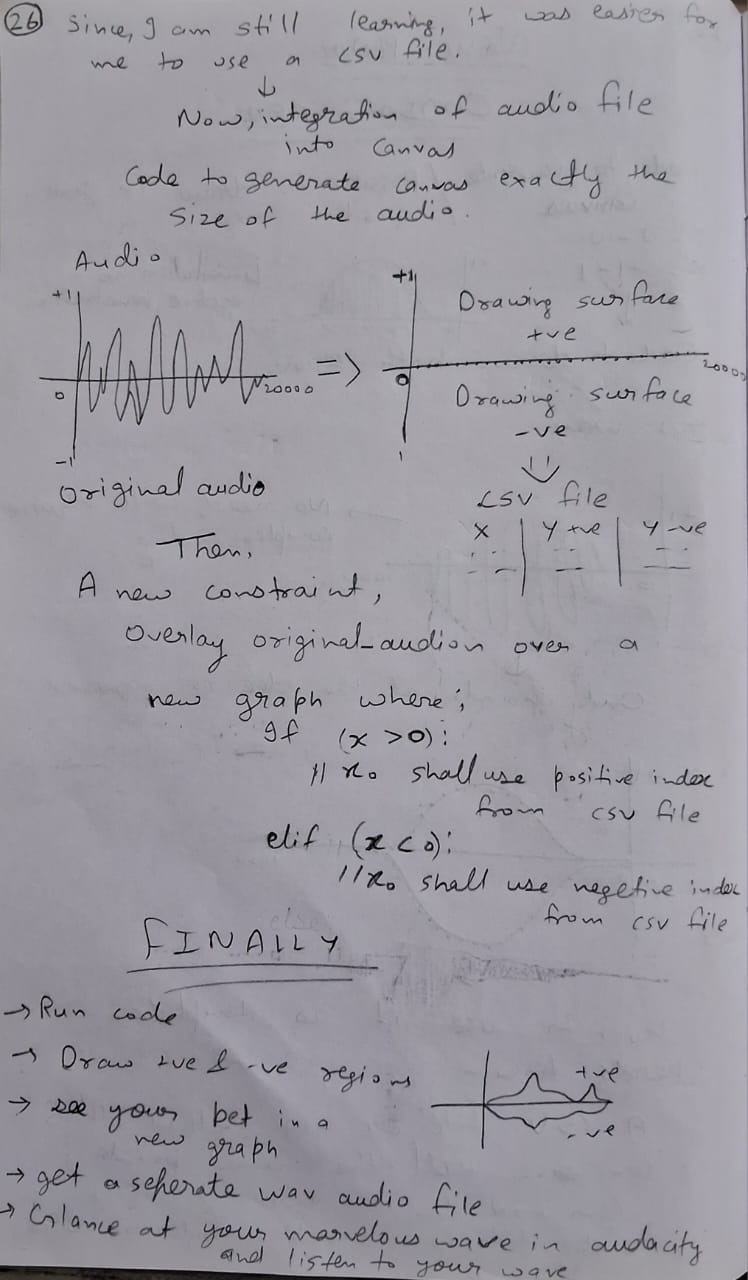 26 Since, I am still learning, it was easier for
me to use a csv file.
↓
Now, integration of audio file
into canvas
Code to generate canvas exactly the
size of the audio.
Audio
+1
0
20000
-1
Original audio
=>
+1
Drawing surface
+ve
0
20000
Drawing surface
-ve
1
csv file
X | Y +ve | Y -ve
Then,
A new constraint,
Overlay original_audion over a
new graph where;
If (x >0):
// x₀ shall use positive index
from csv file
elif (x < 0):
// x₀ shall use negetive index
from csv file
FINALLY
→ Run code
→ Draw +ve & -ve regions
+ve
-ve
→ see your bet in a
new graph
→ get a seperate wav audio file
→ Glance at your marvelous wave in audacity
and listen to your wave